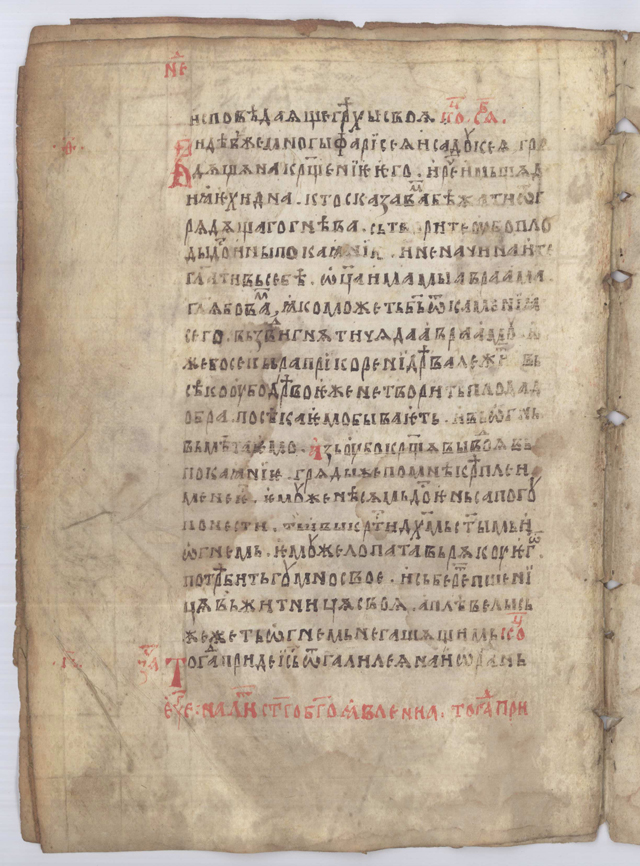 не҃д
исповѣдаѧще грѣ́хы своѧ
Видѣв же многы фарїсеѧ и садꙋкеѧ грѧ
дѧщѧ на крщ҃енїе его. и реч҇ имь ищѧд
иꙗ ехидна. кто сказа ва бѣжати ѿ г
рѧдѧщаго гнѣва. сътворите ѹбо пло
ды дⷭ҇оины покаꙗнїю. и не начинаите
гл҃ати въ себѣ. ѡц҃а имамы авраама
гл҃ѧ бо ва, ꙗко может б҃ъ ѿ каменїа
сего. въздвигнѧти чѧда аврааму.
же бо секыра при корени дрѣва лежит. въ
сѣко ѹбо дрѣво еже не творить плода д
обра. посѣкаемо бываеть. и въ ѡгнь
въмѣтаемо. азъ ѹбо крщ҃ѧ вы водоѧ въ
покаꙗнїе. грѧды же по мнѣ крѣплеи
мене е҇. емꙋже нѣсмь дⷭ҇оинь сапогꙋ
понести. тъи вы крⷭ҇тить дх҃мь ст҃ымь и
ѡгнемь. емꙋже лопата въ рѧкꙋ его.
потрѣбить гꙋмно свое. и съберет пшени
цѧ въ житницѧ своѧ. а плѣвелы съ
жежеть ѡгнемь негасѧщимь. ко҃ц
Тогда приде іс҃ь ѿ галилеѧ на иѡрдань
еѵⷢ҇е: на лит ст҃го бг҃оꙗвлениа. тогда при